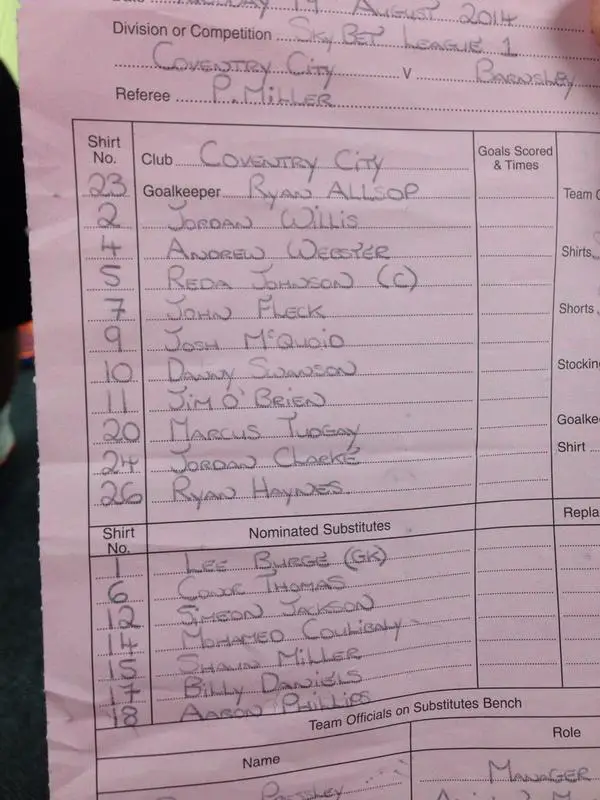 Date TUESDAY 19 AUGUST 2014
Division or Competition SKY BET LEAGUE 1
COVENTRY CITY V BARNSLEY
Referee P. MILLER
Shirt No. Club COVENTRY CITY Goals Scored & Times
23 Goalkeeper RYAN ALLSOP Team
2 JORDAN WILLIS
4 ANDREW WEBSTER Shirts
5 REDA JOHNSON (C)
7 JOHN FLECK Shorts
9 JOSH McQUOID
10 DANNY SWANSON Stocking
11 JIM O'BRIEN
20 MARCUS TUDGAY Goalke
24 JORDAN CLARKE Shirt
26 RYAN HAYNES
Shirt No. Nominated Substitutes Repla
1 LEE BURGE (GK)
6 CONOR THOMAS
12 SIMEON JACKSON
14 MOHAMED COULIBALY
15 SHAUN MILLER
17 BILLY DANIELS
18 AARON PHILLIPS
Team Officials on Substitutes Bench
Name Role
PRESSLEY MANAGER